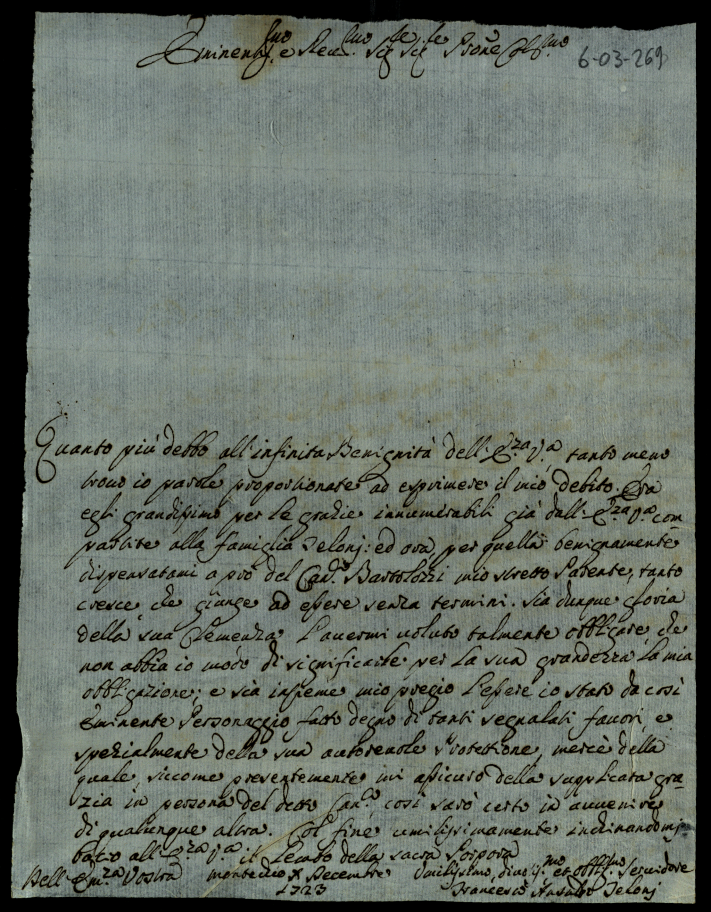 Eminentiss.mo e Rev.mo Sig.re Sig.re Prone Col.mo
6-03-269
Quanto più debbo all'infinita Benignità dell'E.za V.a tanto meno
trovo io parole proportionate ad esprimere il mio debito. Era
egli grandissimo per le grazie innumerabili già dall'E.za V.a com-
partite alla famiglia Zelonj: ed ora per quella benignamente
dispensatami a prò del Can.co Bartolozzi mio stretto Parente, tanto
cresce che giunge ad essere senza termini. Sia dunque gloria
della sua Clemenza l'avermi voluto talmente obbligare che
non abbia io modo di significarle per la sua grandezza la mia
obbligazione; e sia insieme mio pregio l'essere io stato da così
Eminente Personaggio fatto degno di tanti segnalati favori, e
spezialmente della sua autorevole Protettione, mercè della
quale, siccome presentemente mi assicuro della supplicata gra-
zia in persona del detto Can.co così sarò certo in avvenire
di qualunque altra. Col fine umilissimamente inchinandomj
bacio all'E.za V.a il Lembo della sacra Porpora
Dell'Em.za Vostra
X Decembre
1723
Umilissimo, divo.mo et obblig.mo Servidore
Francesco Zelonj